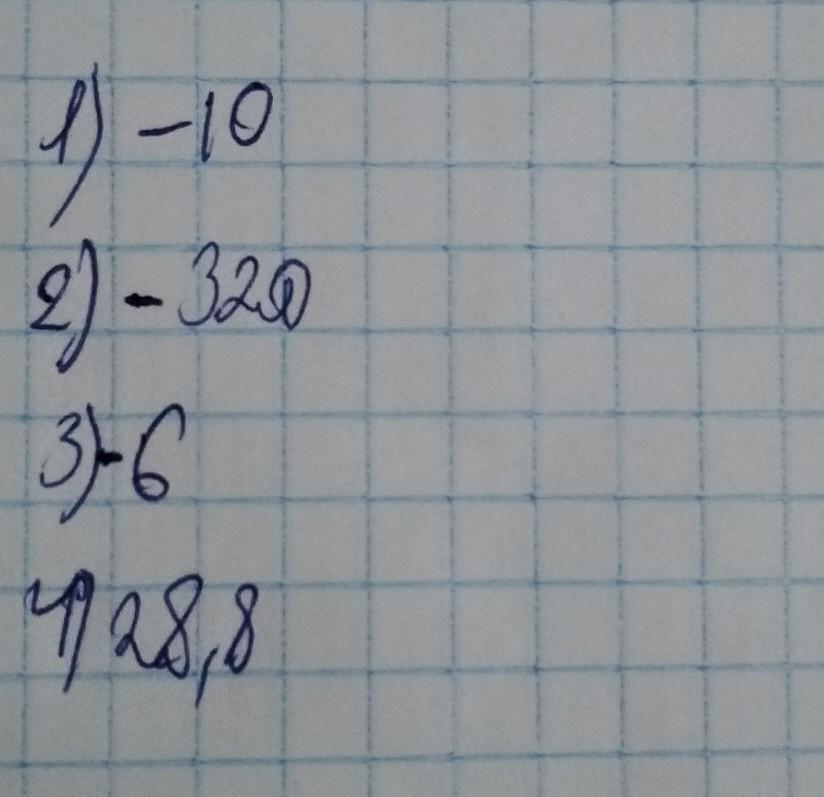 1) -10
2) - 320
3) -6
4) 28,8